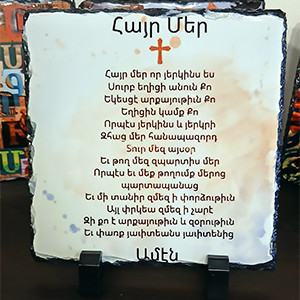 Հայր Մեր
Հայր մեր որ յերկինս ես
Սուրբ եղիցի անուն Քո
Եկեսցէ արքայութիւն Քո
Եղիցին կամք Քո
Որպէս յերկինս և յերկրի
Զհաց մեր հանապազորդ
Տուր մեզ այսօր
Եւ թող մեզ զպարտիս մեր
Որպէս եւ մեք թողումք մերոց
պարտապանաց
Եւ մի տանիր զմեզ ի փորձութիւն
Այլ փրկեա զմեզ ի չարէ
Զի քո է արքայութիւն և զօրութիւն
Եւ փառք յաւիտեանս յաւիտենից
Ամէն